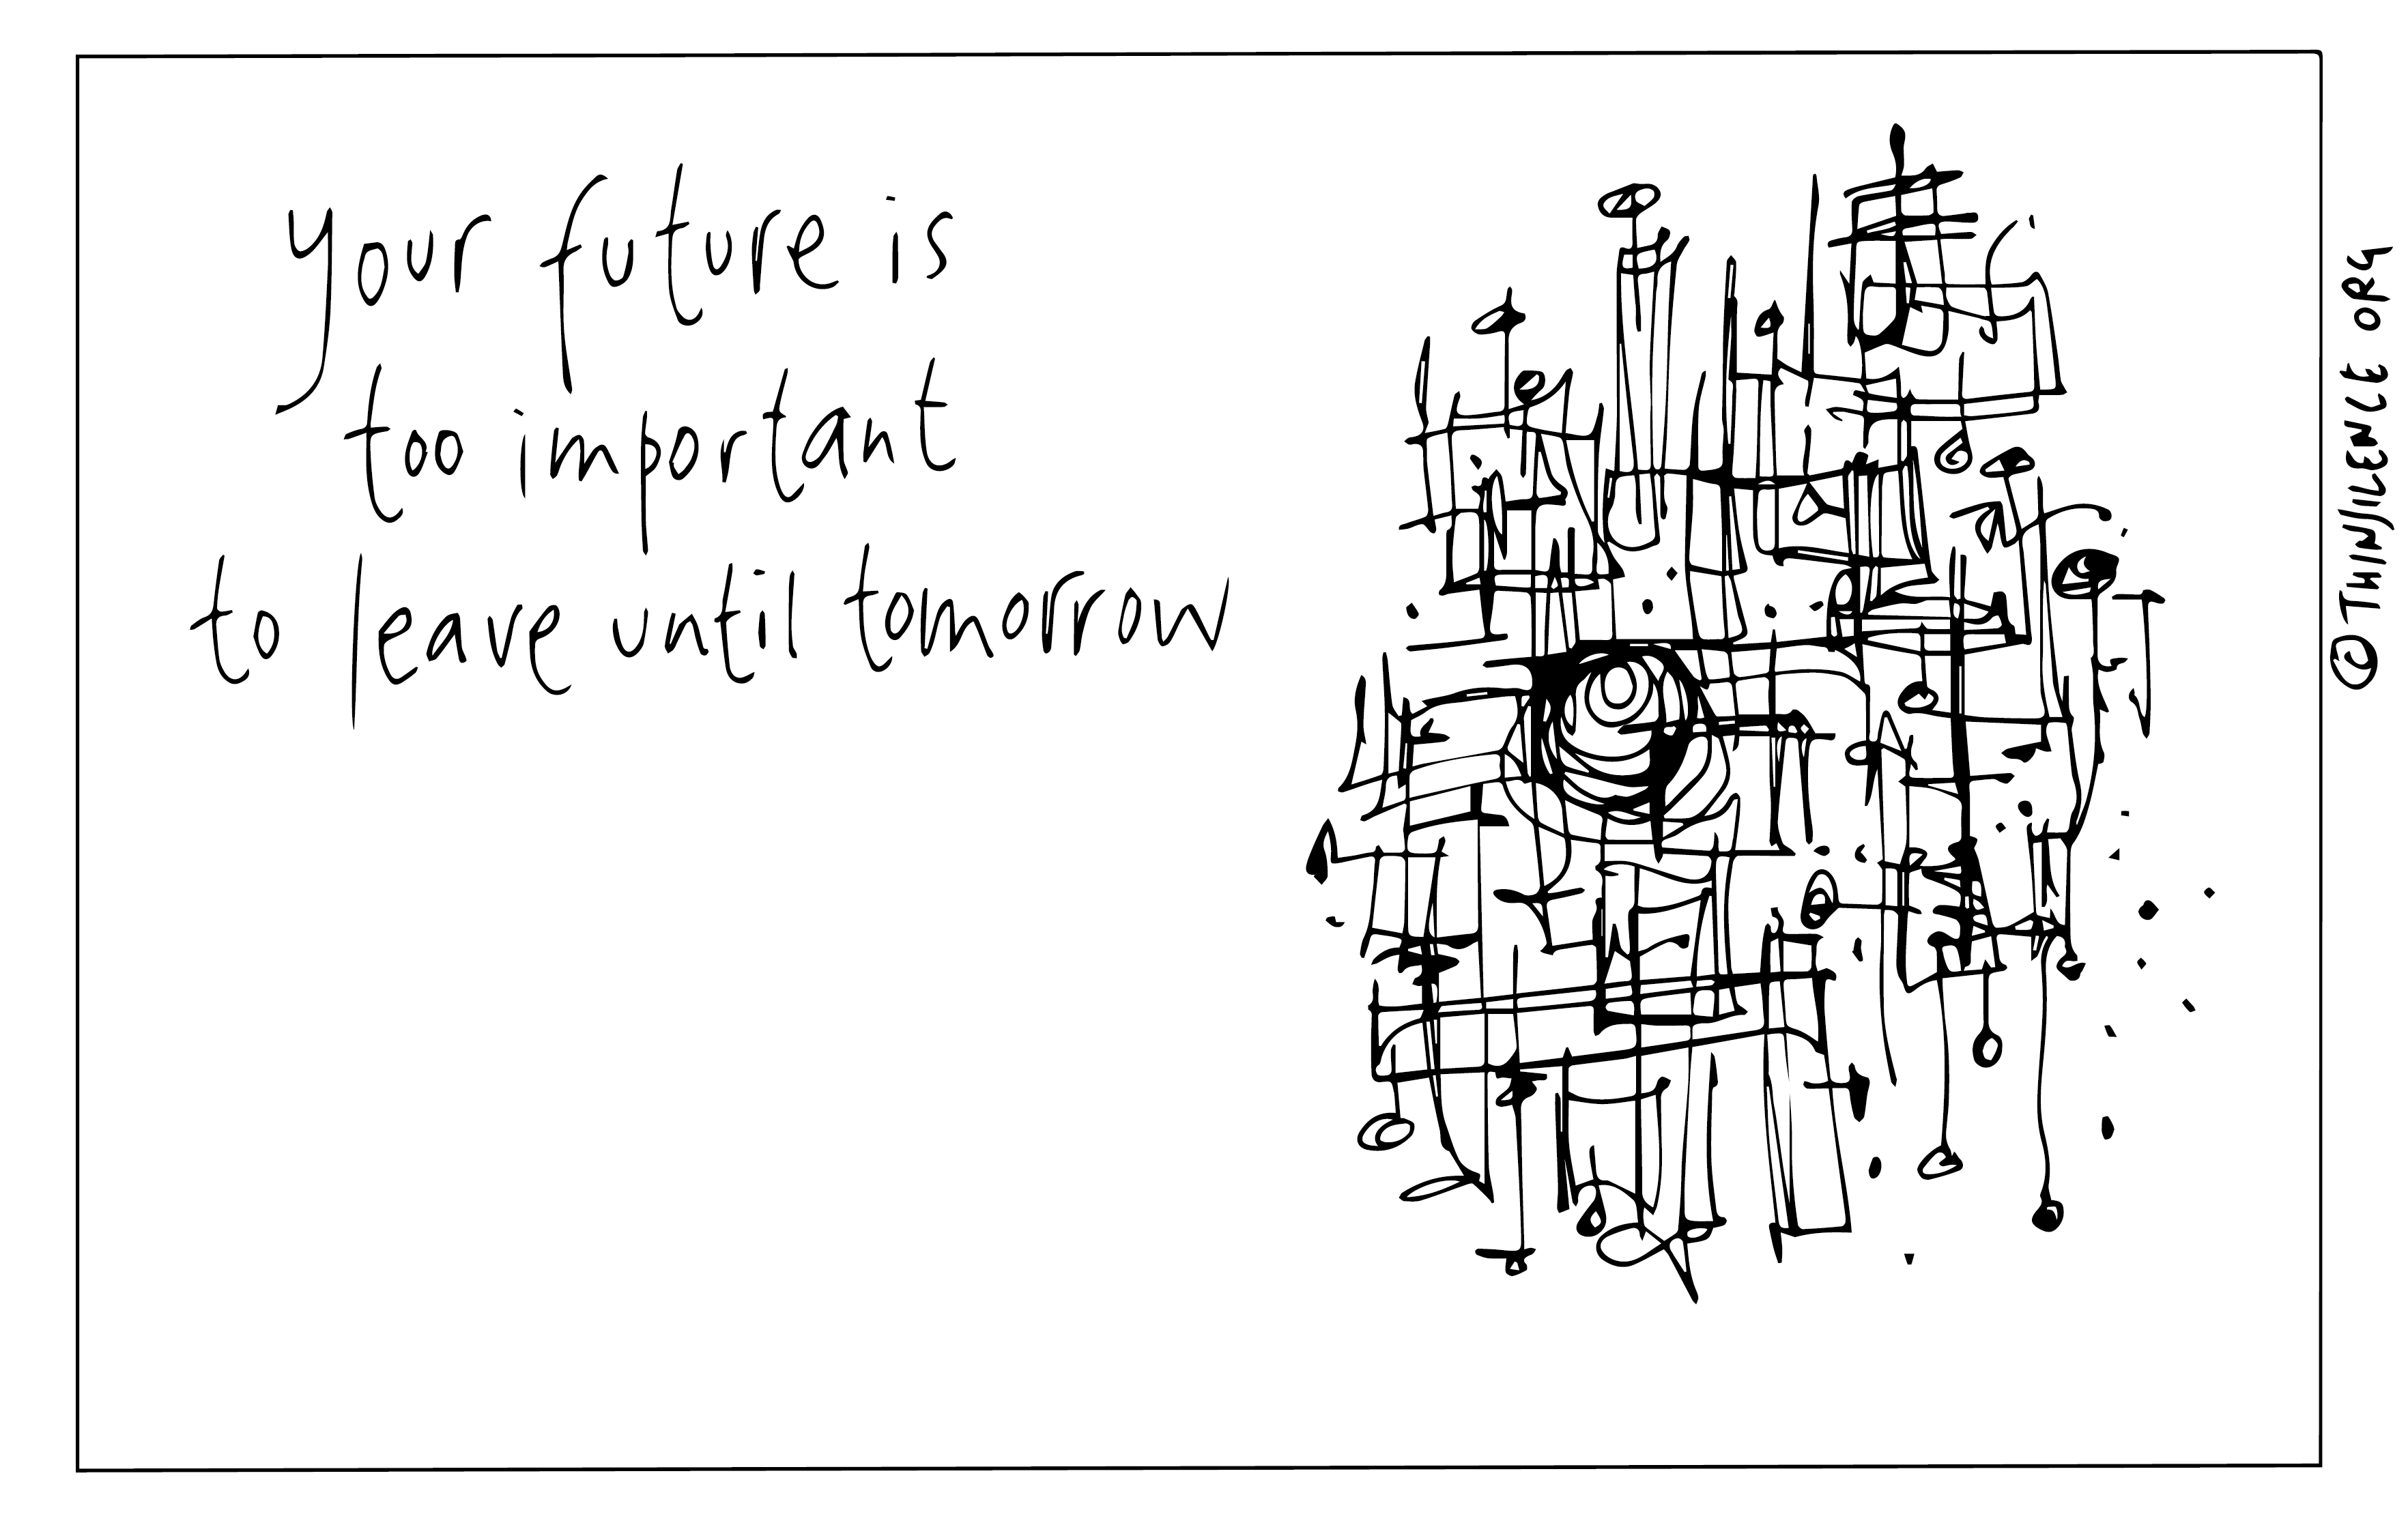 your future is
too important
to leave until tomorrow
© THINJJENK ORG